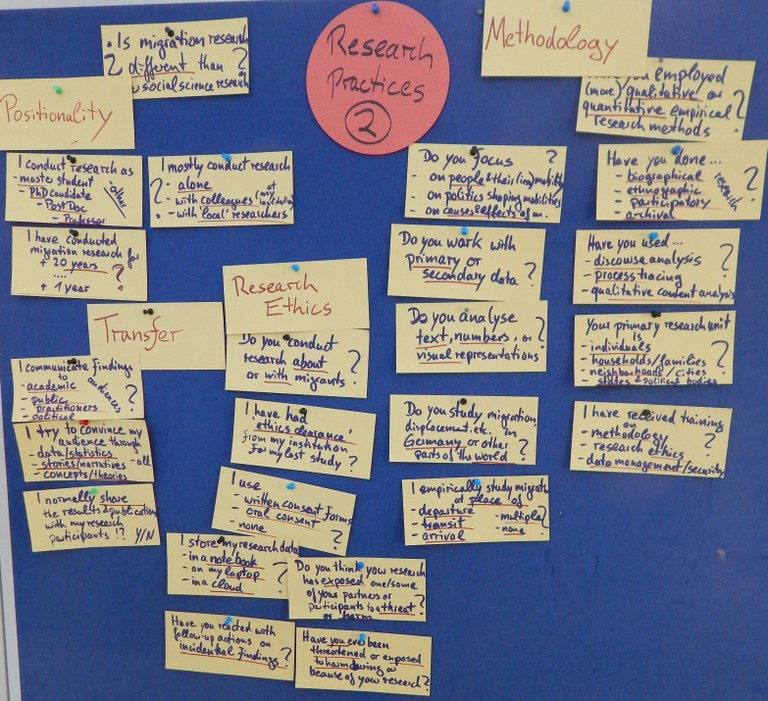 Research
Practices
2
Methodology
• Is migration research
? different than ?
social science research
Positionality
I conduct research as
- master student
- PhD candidate
- PostDoc
- Professor
- other
I mostly conduct research
? - alone
- with colleagues (at my institution)
- with 'local' researchers
I have conducted
migration research for
+ 20 years ?
....
+ 1 year
Transfer
I communicate findings
to audiences
- academic
- public ?
- practitioners
- political
I try to convince my
audience through
- data/statistics
- stories/narratives - all
- concepts/theories
I normally share
the results & publication
with my research
participants !? Y/N
Research
Ethics
Do you conduct
research about ?
or with migrants
I have had
'ethics clearance'
from my institution
for my last study ?
I use
- written consent forms
- oral consent
- none ?
I store my research data
- in a notebook
- on my laptop ?
- in a cloud
Do you think your research
has exposed one/some
of your partners or
participants to a threat ?
or harm
Have you reacted with
follow-up actions on
incidential findings ?
Have you ever been
threatened or exposed
to harm during or
because of your research ?
Do you focus ?
- on people & their (im)mobility
- on politics shaping mobilities
- on causes & effects of m.
Do you work with
primary or
secondary data ?
Do you analyse
text, numbers, or ?
visual representations
Do you study migration,
displacement, etc. in
Germany or other ?
parts of the world
I empirically study migrat
at place of
- departure - multiple
- transit - none ?
- arrival
you employed
(more) qualitative or
quantitative empirical ?
research methods
Have you done...
- biographical
- ethnographic research
- participatory ?
- archival
Have you used...
- discouse analysis
- process tracing ?
- qualitative content analysis
Your primary research unit
is
- individuals
- households/families ?
- neighborhoods/cities
- states & political bodies
I have received training
on
- methodology ?
- research ethics
- data management/security